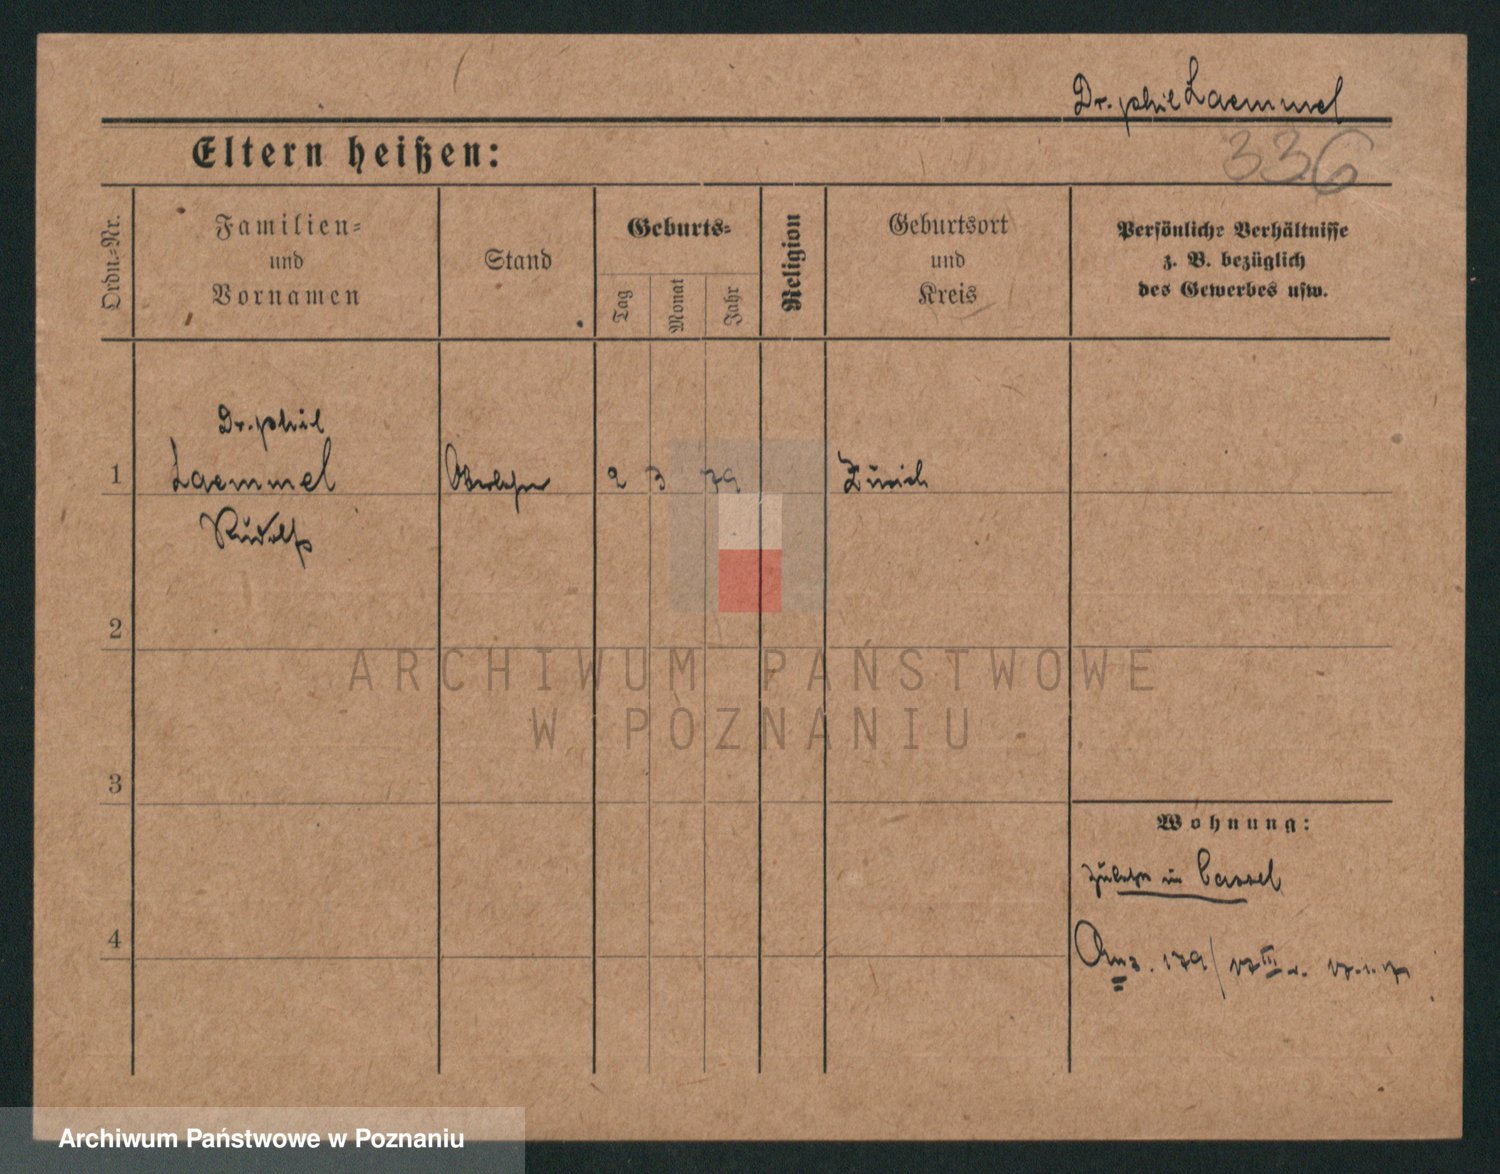 Dr. phil Laemmel
336
Eltern heißen:
Ordn.=Nr.
Familien=
und
Vornamen
Stand
Geburts=
Tag
Monat
Jahr
Religion
Geburtsort
und
Kreis
Persönliche Verhältnisse
z. B. bezüglich
des Gewerbes usw.
Dr. phil
1 Laemmel Oberlehrer 2 3 79 Zürich
Rudolf
2
3
Wohnung:
in Cassel
4
179/17 III
ARCHIWUM PAŃSTWOWE
W POZNANIU
Archiwum Państwowe w Poznaniu